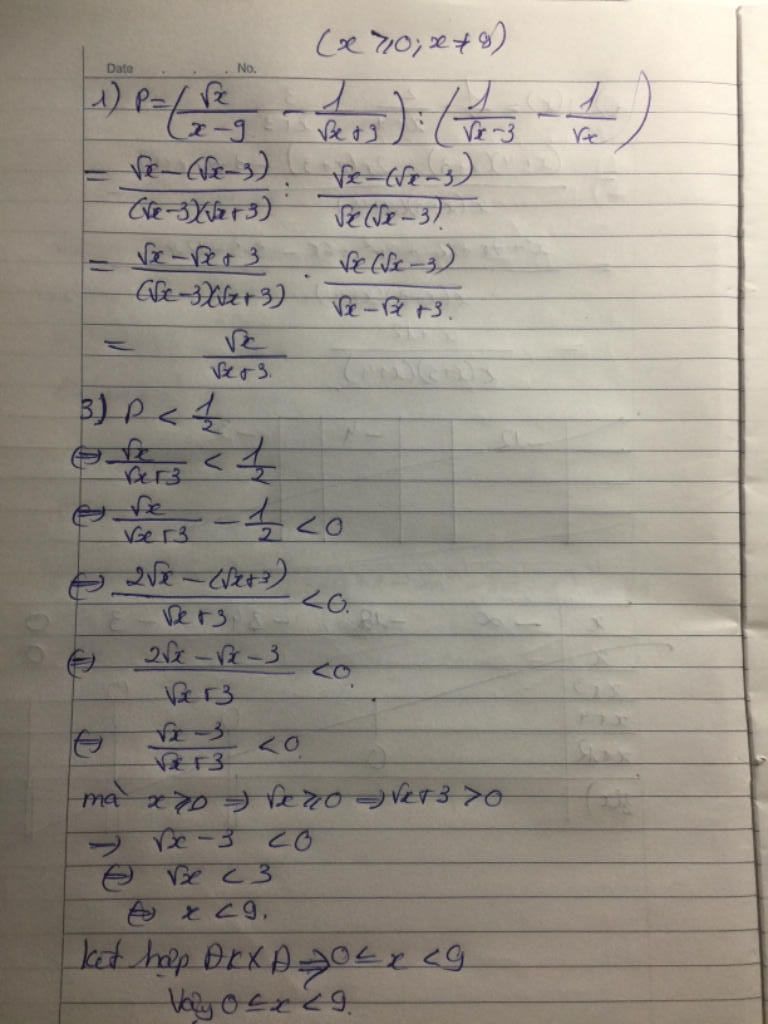 (x ≥ 0; x ≠ 9)
Date . . . No.
1) P = (√x/(x-9) - 1/(√x+3)) : (1/(√x-3) - 1/√x)
= (√x-(√x-3))/((√x-3)(√x+3)) : (√x-(√x-3))/(√x(√x-3))
= (√x-√x+3)/((√x-3)(√x+3)) . (√x(√x-3))/(√x-√x+3)
= √x/(√x+3)
3) P < 1/2
⇔ √x/(√x+3) < 1/2
⇔ √x/(√x+3) - 1/2 < 0
⇔ (2√x-(√x+3))/(√x+3) < 0
⇔ (2√x-√x-3)/(√x+3) < 0
⇔ (√x-3)/(√x+3) < 0
mà x ≥ 0 ⇒ √x ≥ 0 ⇒ √x+3 > 0
→ √x-3 < 0
⇔ √x < 3
⇔ x < 9.
kết hợp ĐKXĐ ⇒ 0 ≤ x < 9
Vậy 0 ≤ x < 9.